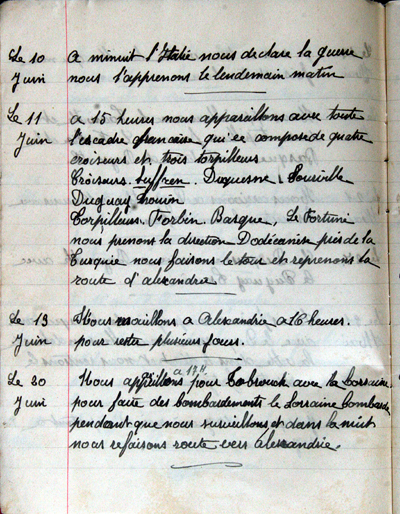 Le 10 A minuit l'Italie nous declare la guerre
Juin nous l'apprenons le lendemain matin
Le 11 a 15 heures nous appareillons avec toute
Juin l'escadre francaise qui se compose de quatre
croiseurs et trois torpilleurs
Croiseurs. Suffren. Duquesne. Tourville
Duguay Trouin
Torpilleurs. Forbin. Basque, Le Fortuné
nous prenons la direction Dodécanèse près de la
Turquie nous faisons le tour et reprenons la
route d'alexandrie
Le 13 Nous mouillons a Alexandrie a 16 heures.
Juin pour rester plusieur jours.
a 17H
Le 20 Nous appareillons pour Tobrouck avec la Lorraine
Juin pour faire des bombardements le Lorraine bombarde
pendant que nous surveillons et dans la nuit
nous refaisons route vers Alexandrie.